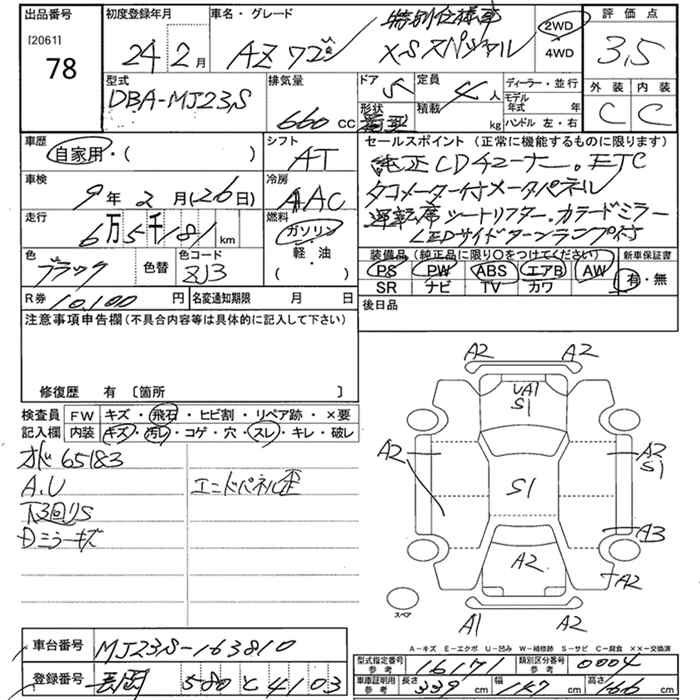 出品番号 [2061] 78
初度登録年月 24 2 月
車名・グレード AZワゴン 特別仕様車 X-Sスペシャル
2WD 4WD
評価点 3,5
外装 内装
C C
型式 DBA-MJ23S
排気量 660 CC
ドア 5 定員 4 人
形状 積載 kg
ディーラー・並行
モデル年式 年
ハンドル 左・右
車歴 自家用・( )
シフト AT
車検 9年 2月(26日)
冷房 AAC
走行 6万5千181 km
燃料 ガソリン 軽・油 ( )
色 ブラック 色替 色コード ZJ3
R券 10,100 円 名変通知期限 月 日
セールスポイント(正常に機能するものに限ります)
純正CDチューナー。ETC
タコメーター付メータパネル
運転席シートリフター。カラードミラー
LEDサイドターンランプ付
装備品(純正品に限り〇をつけてください) 新車保証書
PS PW ABS エアB AW 有・無
SR ナビ TV カワ
後日品
注意事項申告欄(不具合内容等は具体的に記入して下さい)
修復歴 有 〔箇所 〕
検査員 FW キズ・飛石・ヒビ割・リペア跡・×要
記入欄 内装 キズ・汚レ・コゲ・穴・スレ・キレ・破レ
65183
A.U エンドパネル歪
下回りS
Dミラーキズ
A2 A2
UA1
S1
A2 A2
S1
S1
A3
A2 A2
A1 A2
スペア
A-キズ E-エクボ U-凹み W-補修跡 S-サビ C-腐食 ××-交換済
車台番号 MJ23S-163810
登録番号 長岡 580 と 4103
型式指定番号 参考 16171 類別区分番号 参考 0004
車庫証明用 参考 長さ 339 cm 幅 147 cm 高さ 166 cm